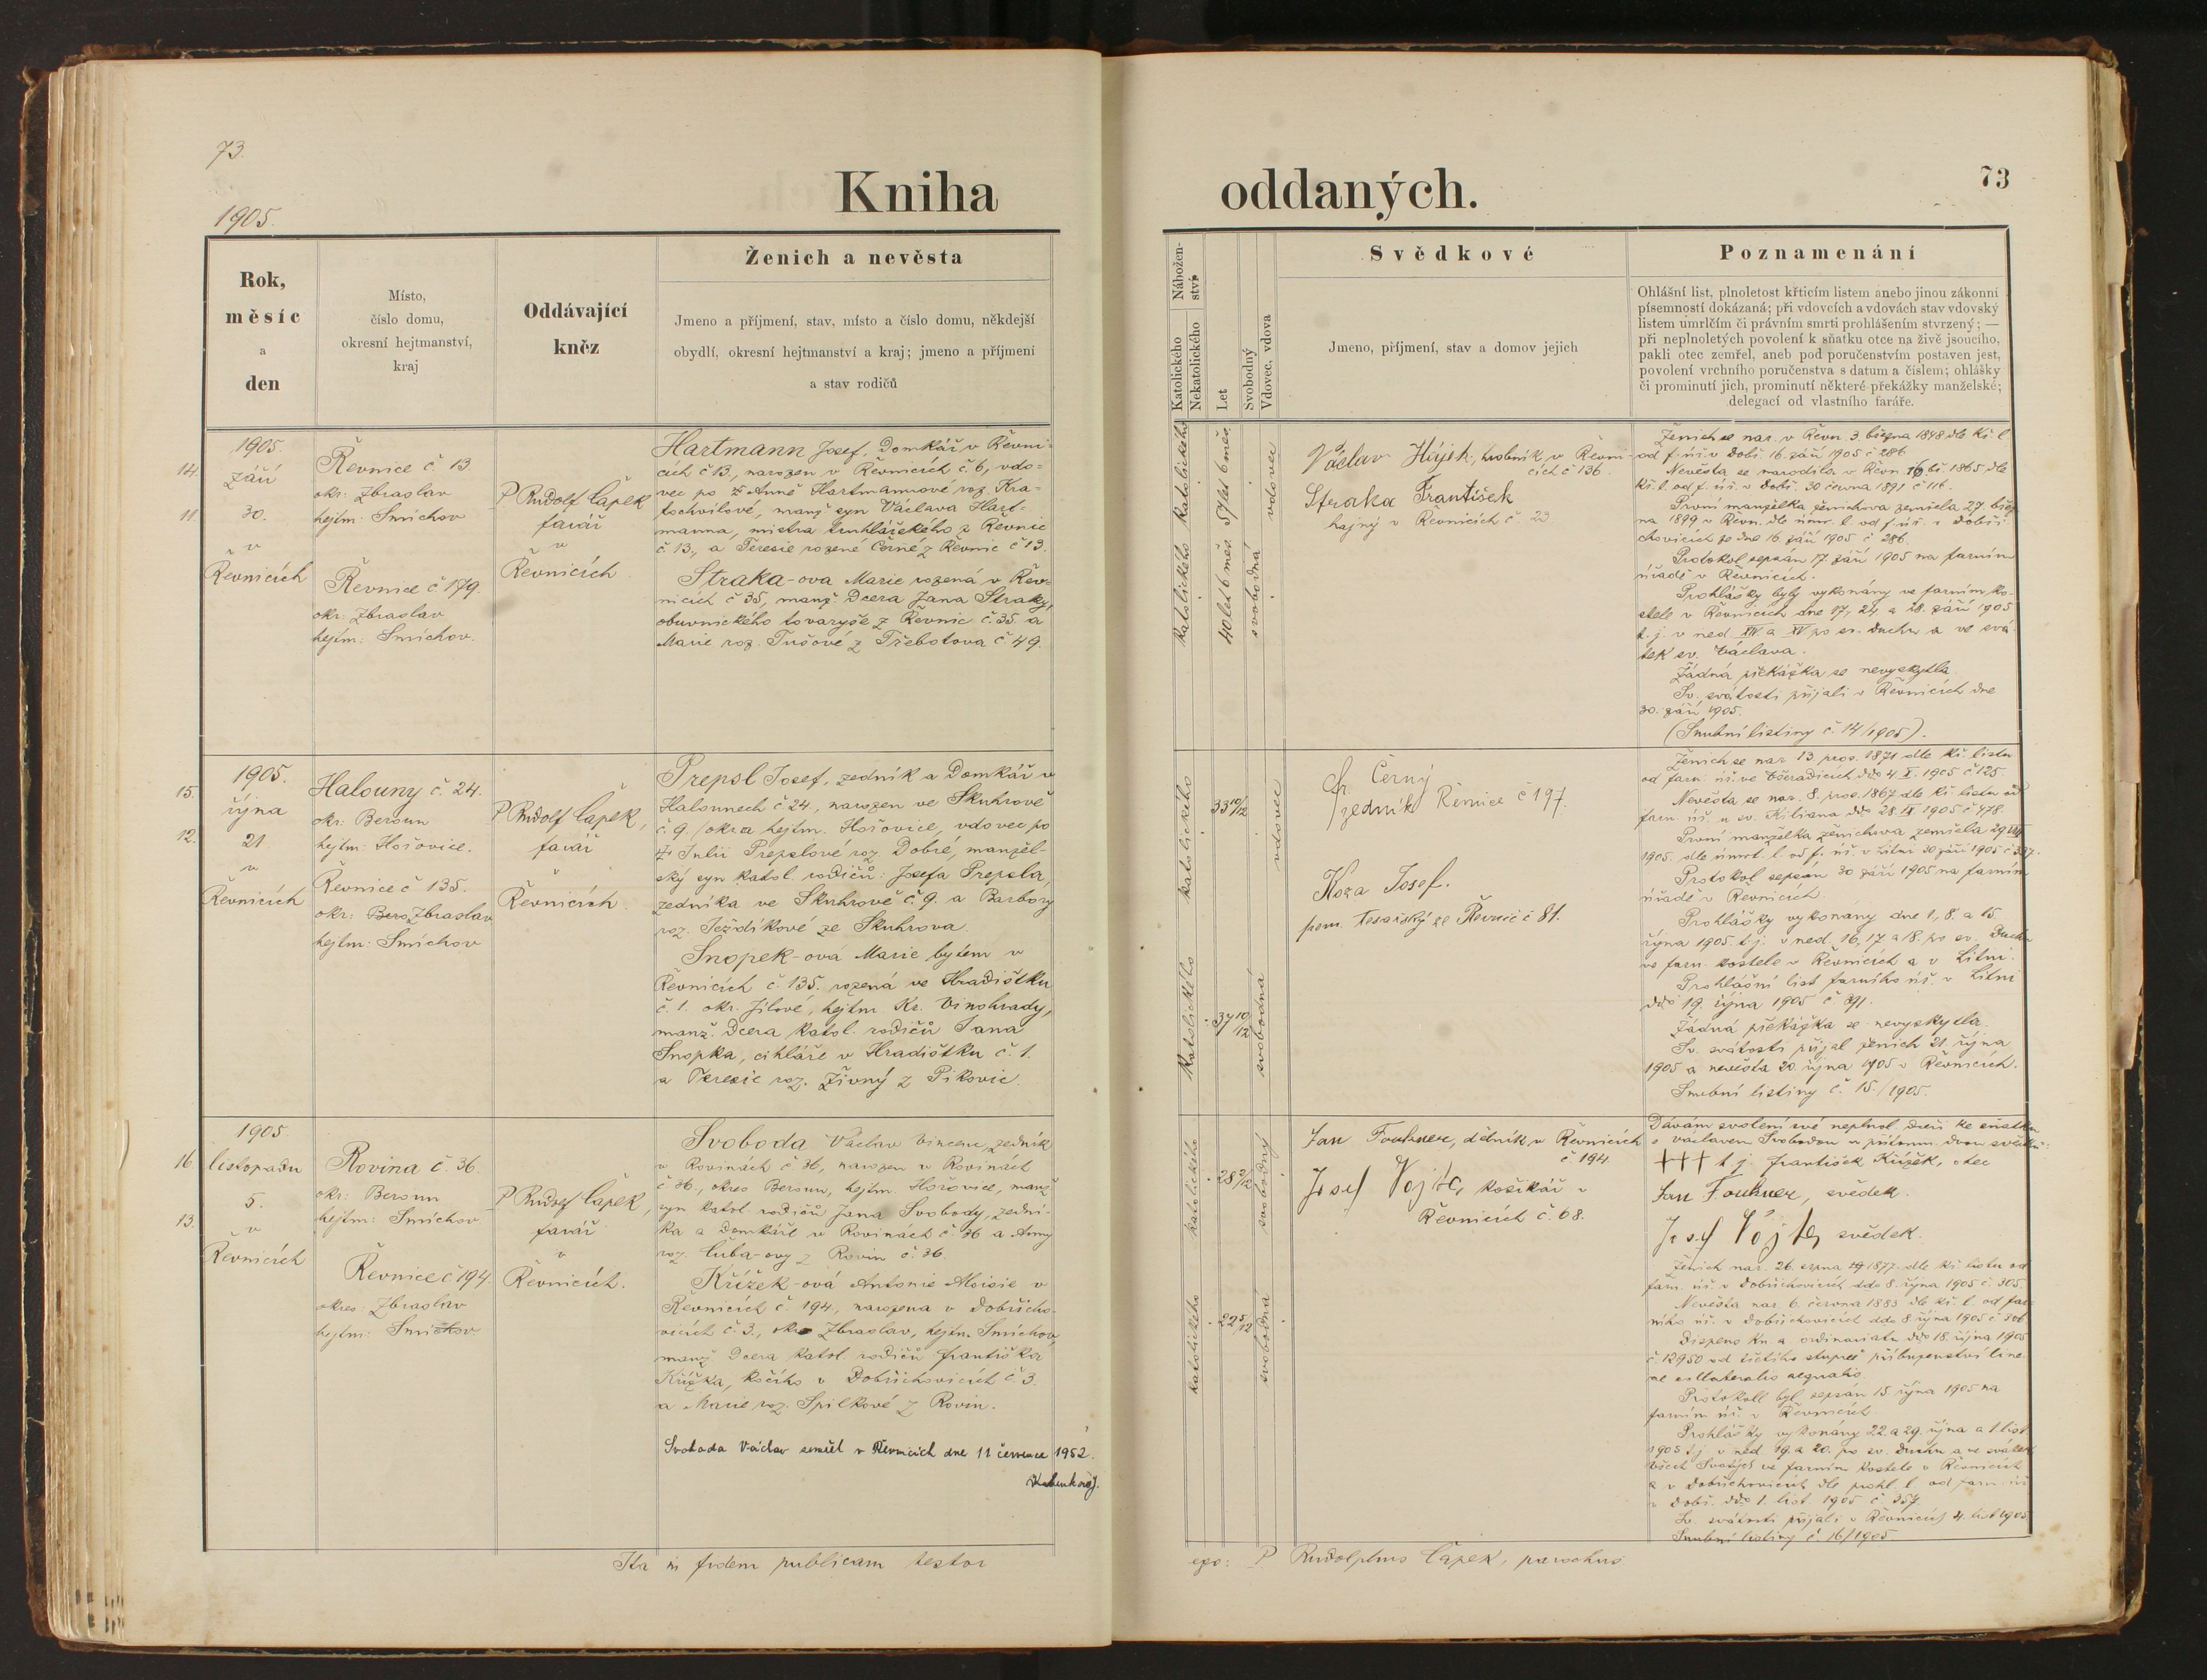 73.
Kniha
1905.
Rok,
měsíc
a
den
Místo,
číslo domu,
okresní hejtmanství,
kraj
Oddávající
kněz
Ženich a nevěsta
Jmeno a příjmení, stav, místo a číslo domu, někdejší
obydlí, okresní hejtmanství a kraj; jmeno a příjmení
a stav rodičů
14.
11.
1905.
září
30.
v
Řevnicích
Řevnice č. 13.
okr: Zbraslav
hejtm: Smíchov
Řevnice č 179.
okr: Zbraslav
hejtm: Smíchov.
P Rudolf Čapek
farář
v
Řevnicích
Hartmann Josef, Domkář v Řevni-
cích č 13, narozen v Řevnicích č. 6, vdo-
vec po Anně Hartmannové roz. Kra-
tochvilové, manž syn Václava Hart-
manna, mistra truhlářského z Řevnic
č. 13., a Teresie rozené Černé z Řevnic č 13.
Straka-ova Marie rozená v Řev-
nicích č 35, manž. Dcera Jana Straky,
obuvnického tovaryše z Řevnic č. 35 a
Marie roz. Tušové z Třebotova č 49.
15.
12.
1905.
října
21
v
Řevnicích
Halouny č. 24.
okr: Beroun
hejtm: Hořovice.
Řevnice č 135.
okr: Bero Zbraslav
hejtm: Smíchov
P Rudolf Čapek,
farář
v
Řevnicích.
Prepsl Josef, zedník a Domkář v
Halounech č 24, narozen ve Skuhrově
č. 9. / okr a hejtm. Hořovice, vdovec po
Julii Prepslové roz Dobré, manžel-
ský syn katol. rodičů: Josefa Prepsla,
zedníka ve Skuhrově č 9. a Barbory
roz. Ježdíkové ze Skuhrova.
Snopek-ová Marie bytem v
Řevnicích č. 135. rozená ve Hradištku
č. 1. okr. Jílové, hejtm. Kr. Vinohrady,
manž. Dcera katol. rodičů Jana
Snopka, cihláře v Hradištku č. 1.
a Teresie roz. Živný z Pikovic.
16.
13.
1905
listopadu
5.
v
Řevnicích
Rovina č. 36.
okr: Beroun
hejtm: Smíchov
Řevnice č 194.
okres: Zbraslav
hejtm: Smíchov
P Rudolf Čapek,
farář
v
Řevnicích.
Svoboda Václav Vincenc, zedník
v Rovinách č 36, narozen v Rovinách
č. 36., okres Beroun, hejtm. Hořovice, manž
syn katol. rodičů Jana Svobody, zední-
ka a Domkáře v Rovinách č. 36 a Anny
roz. Čuba-ovy z Rovin č. 36.
Křížek-ová Antonie Aloisie v
Řevnicích č. 194, narozena v Dobřicho-
vicích č. 3., okr Zbraslav, hejtm. Smíchov,
manž Dcera katol. rodičů Františka
Křížka, kočího v Dobřichovicích č. 3.
a Marie roz. Spilkové z Rovin.
Svoboda Václav zemřel v Řevnicích dne 11 července 1952.
Ita in fidem publicam testor
oddaných.
73
Nábožen-
stvi
Katolického
Nekatolického
Let
Svobodný
Vdovec, vdova
Svědkové
Jmeno, příjmení, stav a domov jejich
Poznamenání
Ohlášní list, plnoletost křticím listem anebo jinou zákonní
písemností dokázaná; při vdovcích a vdovách stav vdovský
listem úmrlčím či právním smrti prohlášením stvrzený; —
při neplnoletých povolení k sňatku otce na živě jsoucího,
pakli otec zemřel, aneb pod poručenstvím postaven jest,
povolení vrchního poručenstva s datum a číslem; ohlášky
či prominutí jich, prominutí některé překážky manželské;
delegací od vlastního faráře.
katolického
57 let 6 měs
vdovec
katolického
40 let 6 měs.
svobodná
Václav Hájek, hrobník v Řevni-
cích č 136.
Straka František
hajný v Řevnicích č. 23
Ženich se nar. v Řevn. 3. března 1848 dle kř. l
od f. úř. v Dobř. 16. září 1905 č 286
Nevěsta se narodila v Řevn 16. bř. 1865 dle
kř. l. od f. úř. v Dobř. 30 června 1891 č 116.
První manželka ženichova zemřela 27. břez
na 1899 v Řevn. dle úmr. l. od f. úř. v Dobři
chovicích ze dne 16. září 1905 č 286.
Protokol sepsán 17. září 1905 na farním
úřadě v Řevnicích.
Prohlášky byly vykonány ve farním ko-
stele v Řevnicích dne 17, 24, a 28. září 1905
t. j. v ned XIV a XV po sv. Duchu a ve svá-
tek sv. Václava.
Žádná překážka se nevyskytla.
Sv. svátosti přijali v Řevnicích dne
30. září 1905.
(Snubní listiny č. 14/1905).
katolického
33 10/12
vdovec
katolického
37 10/12
svobodná
Fr. Černý
zedník Řevnice č 197.
Koza Josef.
pom. tesařský ze Řevnic č 81.
Ženich se nar 13. pros. 1871 dle kř. listu
od farn. úř. ve Všeradicích ddo 4. X. 1905 č 125.
Nevěsta se nar. 8. pros. 1867 dle kř. listu od
farn. úř. u sv. Kiliana ddo 28. IX 1905 č 478.
První manželka ženichova zemřela 29 VIII
1905. dle úmrt. l. od f. úř. v Litni 30 září 1905 č 337.
Protokol sepsan 30 září 1905 na farním
úřadě v Řevnicích
Prohlášky vykonány dne 1., 8. a 15.
října 1905. t. j. v ned. 16, 17 a 18. po sv. Duchu
ve farn. kostele v Řevnicích a v Litni.
Prohlášní list farního úř. v Litni
ddo 19. října 1905 č. 391.
Žádná překážka se nevyskytla.
Sv. svátosti přijal ženich 21. října
1905 a nevěsta 20. října 1905 v Řevnicích.
Snubní listiny č. 15./1905.
katolického
28 2/12
svobodný
katolického
22 5/12
svobodná
Jan, dělník v Řevnicích
č. 194
Josef Vojta, košikář v
Řevnicích č. 68.
Dávám svolení své neplnol. dceři ke sňatku
s Václavem Svobodou u přítomn. dvou svědků:
+++ t. j. František Křížek, otec
Jan, svědek.
Josef Vojta, svědek.
Ženich nar. 26. srpna 1877. dle kř. listu od
farn. úř. v Dobřichovicích ddo 8. října 1905 č. 305
Nevěsta nar. 6. června 1883 dle kř. l. od far-
ního úř. v Dobřichovicích ddo 8 října 1905 č 306
Dispens kn. a. ordinariatu ddo 18. října 1905
č. 12950 od třetího stupně příbuzenství line-
ae collateralis aequalis.
Protokoll byl sepsán 15 října 1905 na
farním úř. v Řevnicích.
Prohlášky vykonány 22. a 29. října a 1. list
1905 t. j. v ned 19. a 20. po sv. Duchu a ve svátek
Všech Svatých ve farním kostele v Řevnicích
a v Dobřichovicích dle prohl. l. od farn. úř
v Dobř. ddo 1. list. 1905 č 357.
Sv. svátosti přijali v Řevnicích 4. list 1905
Snubní listiny č 16/1905
ego: P Rudolphus Čapek, parochus